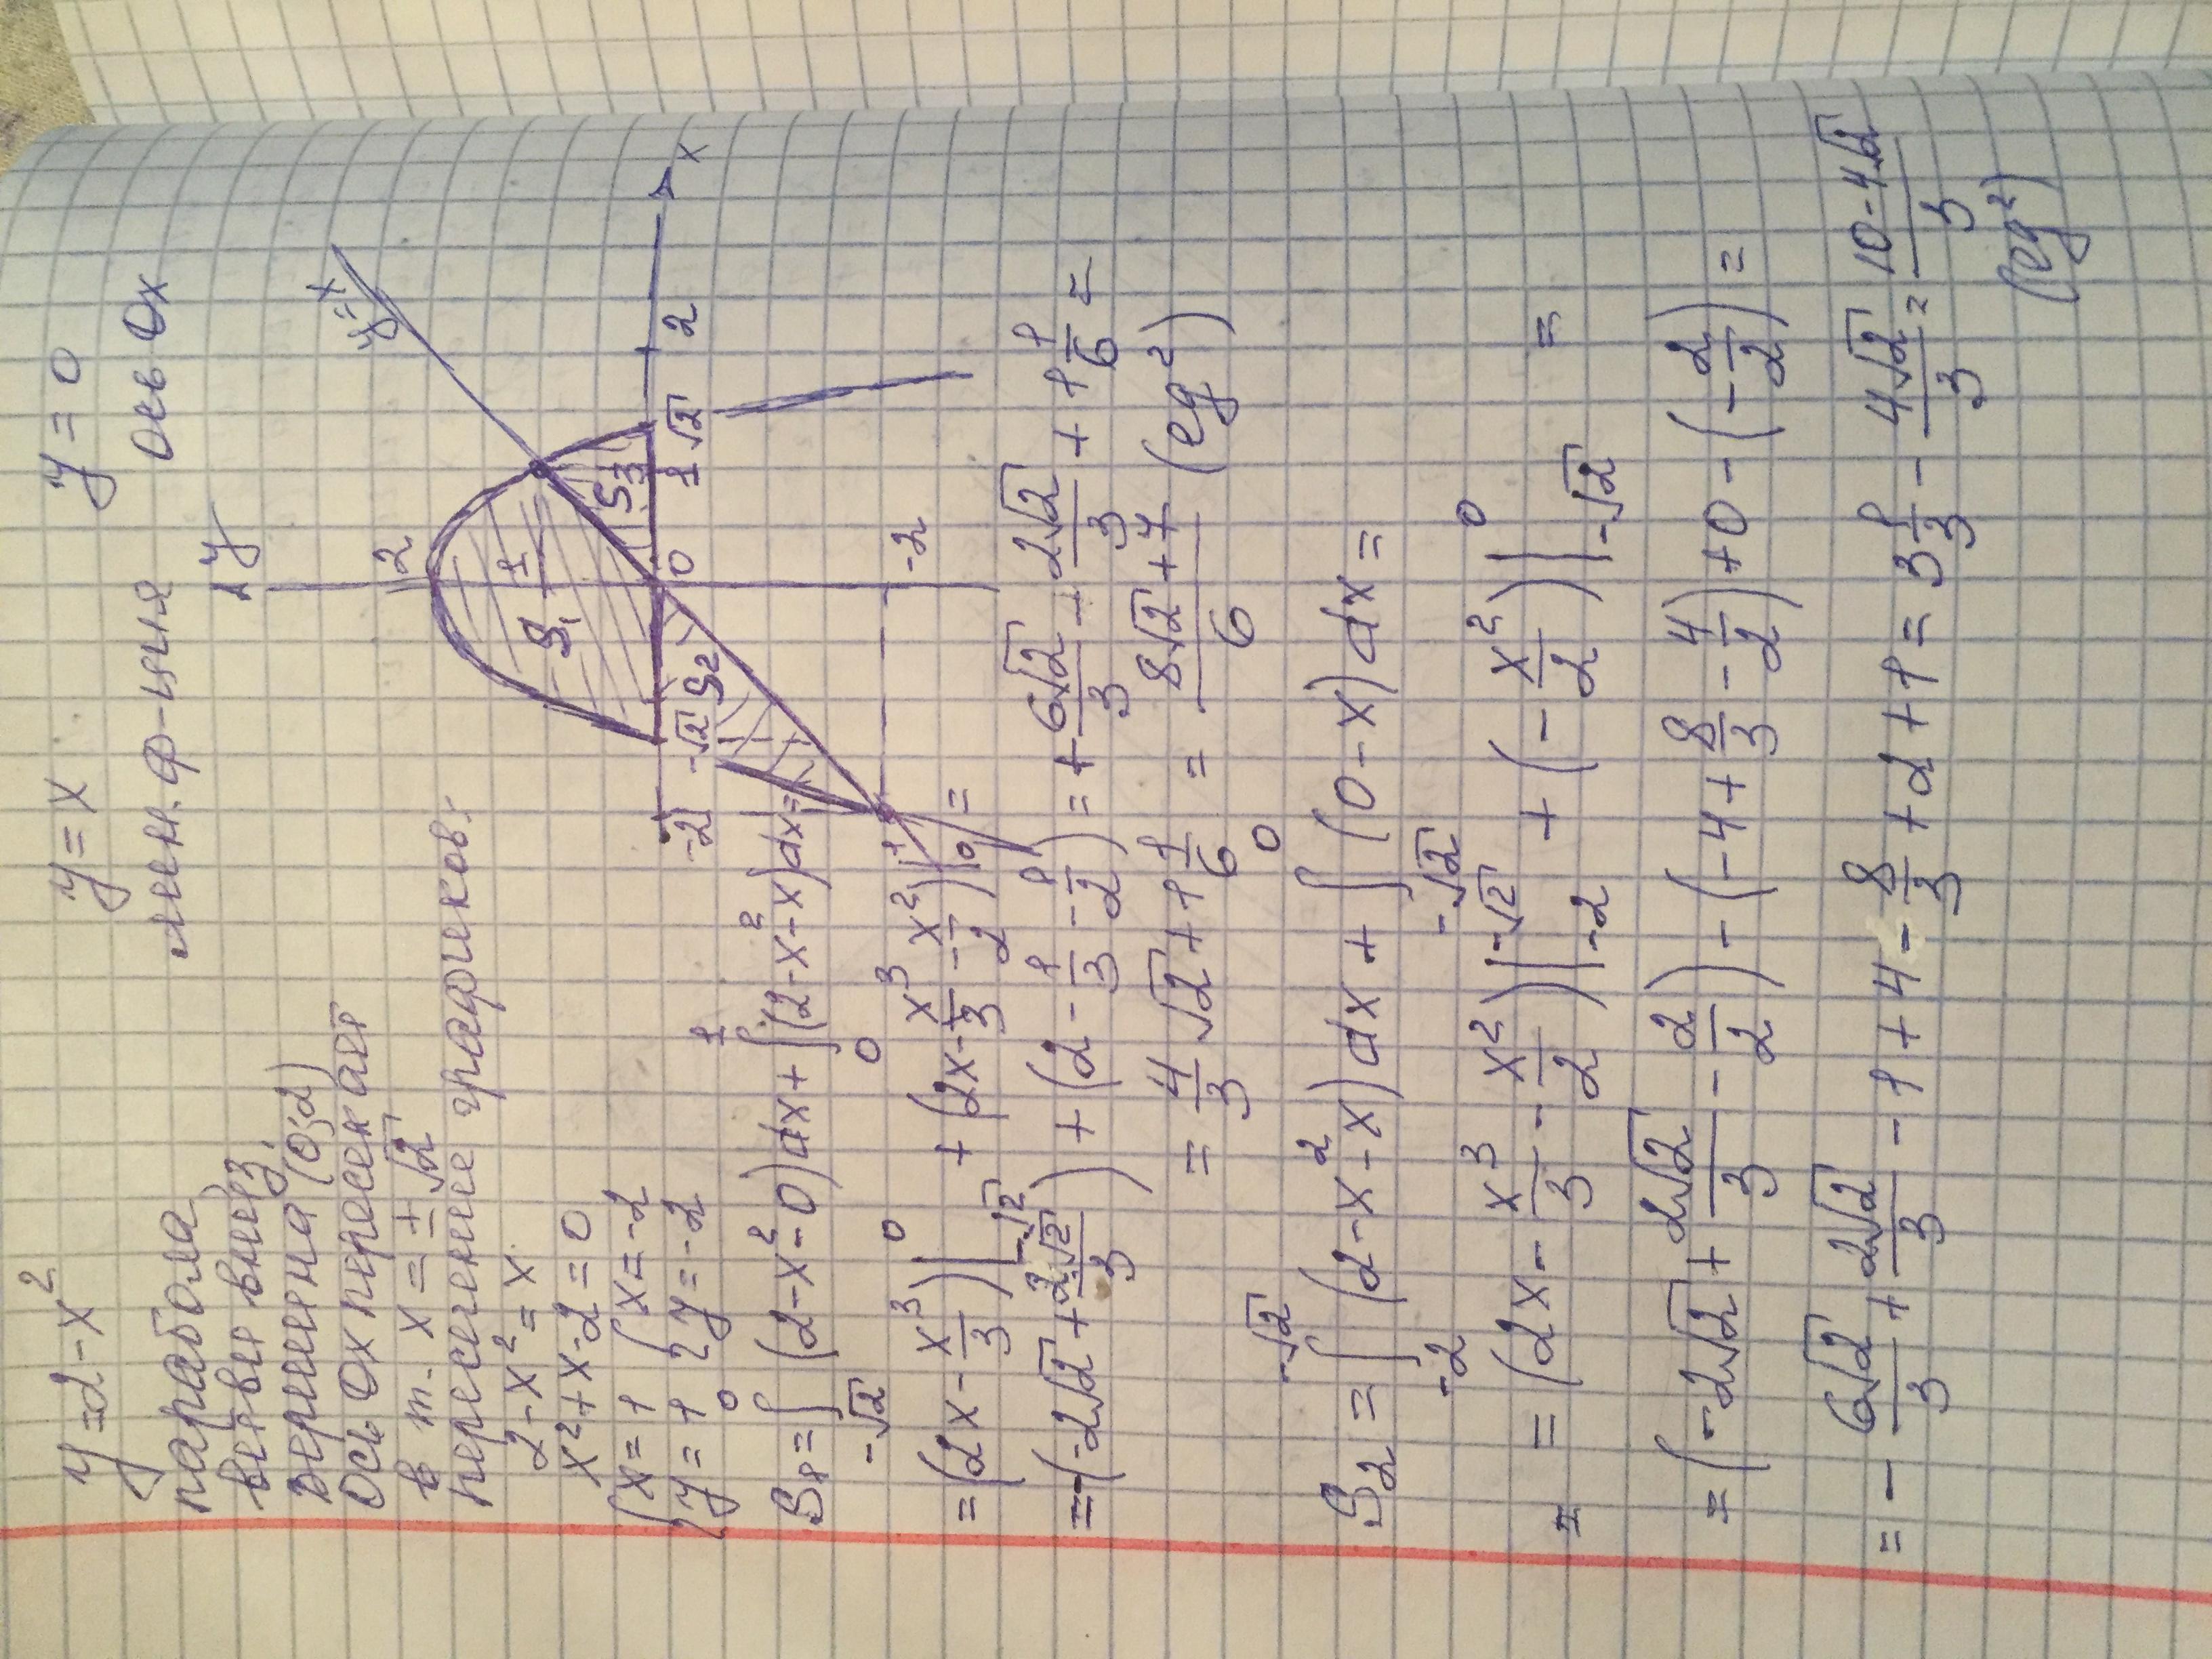 y = 2 - x²    y = x    y = 0
парабола    лин. ф-ция    ось Ox
ветви вниз,
вершина (0;2)
Ось Ox пересекает
в т. x = ±√2
пересечение графиков:
2 - x² = x
x² + x - 2 = 0
{x = 1    {x = -2
{y = 1    {y = -2
y
2
y = x
S₁
1
S₃
-2    -√2    0    1    √2    2    x
S₂
-2
S₁ = ∫_{-√2}^{0} (2 - x² - 0)dx + ∫_{0}^{1} (2 - x² - x)dx =
= (2x - x³/3)|_{-√2}^{0} + (2x - x³/3 - x²/2)|_{0}^{1} =
= -(-2√2 + 2√2/3) + (2 - 1/3 - 1/2) = + 6√2/3 - 2√2/3 + 1 1/6 =
= 4/3 √2 + 1 1/6 = 8√2 + 7/6 (ед²)
S₂ = ∫_{-2}^{-√2} (2 - x² - x)dx + ∫_{-√2}^{0} (0 - x)dx =
= = (2x - x³/3 - x²/2)|_{-2}^{-√2} + (- x²/2)|_{-√2}^{0} =
= (-2√2 + 2√2/3 - 2/2) - (-4 + 8/3 - 4/2) + 0 - (- 2/2) =
= - 6√2/3 + 2√2/3 - 1 + 4 - 8/3 + 2 + 1 = 3 1/3 - 4√2/3 = 10 - 4√2/3
(ед²)